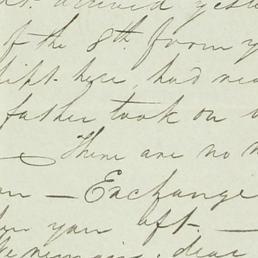 arrived yeste
of the 8th. from y
here, had rea
father took on
There are no m
on — Exchange
you aft. —
remains, dear